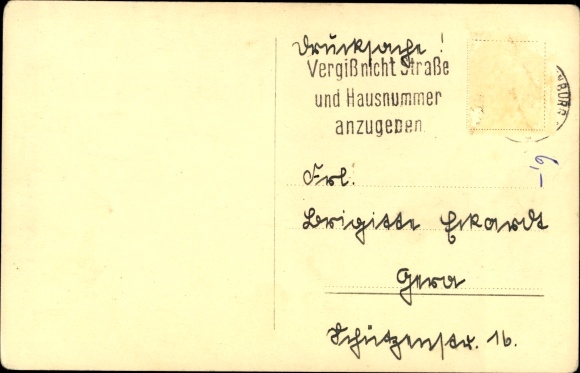 Drucksache!
Vergiß nicht Straße
und Hausnummer
anzugeben
6,-
Frl.
Brigitte Eckardt
Gera
Schützenstr. 16.